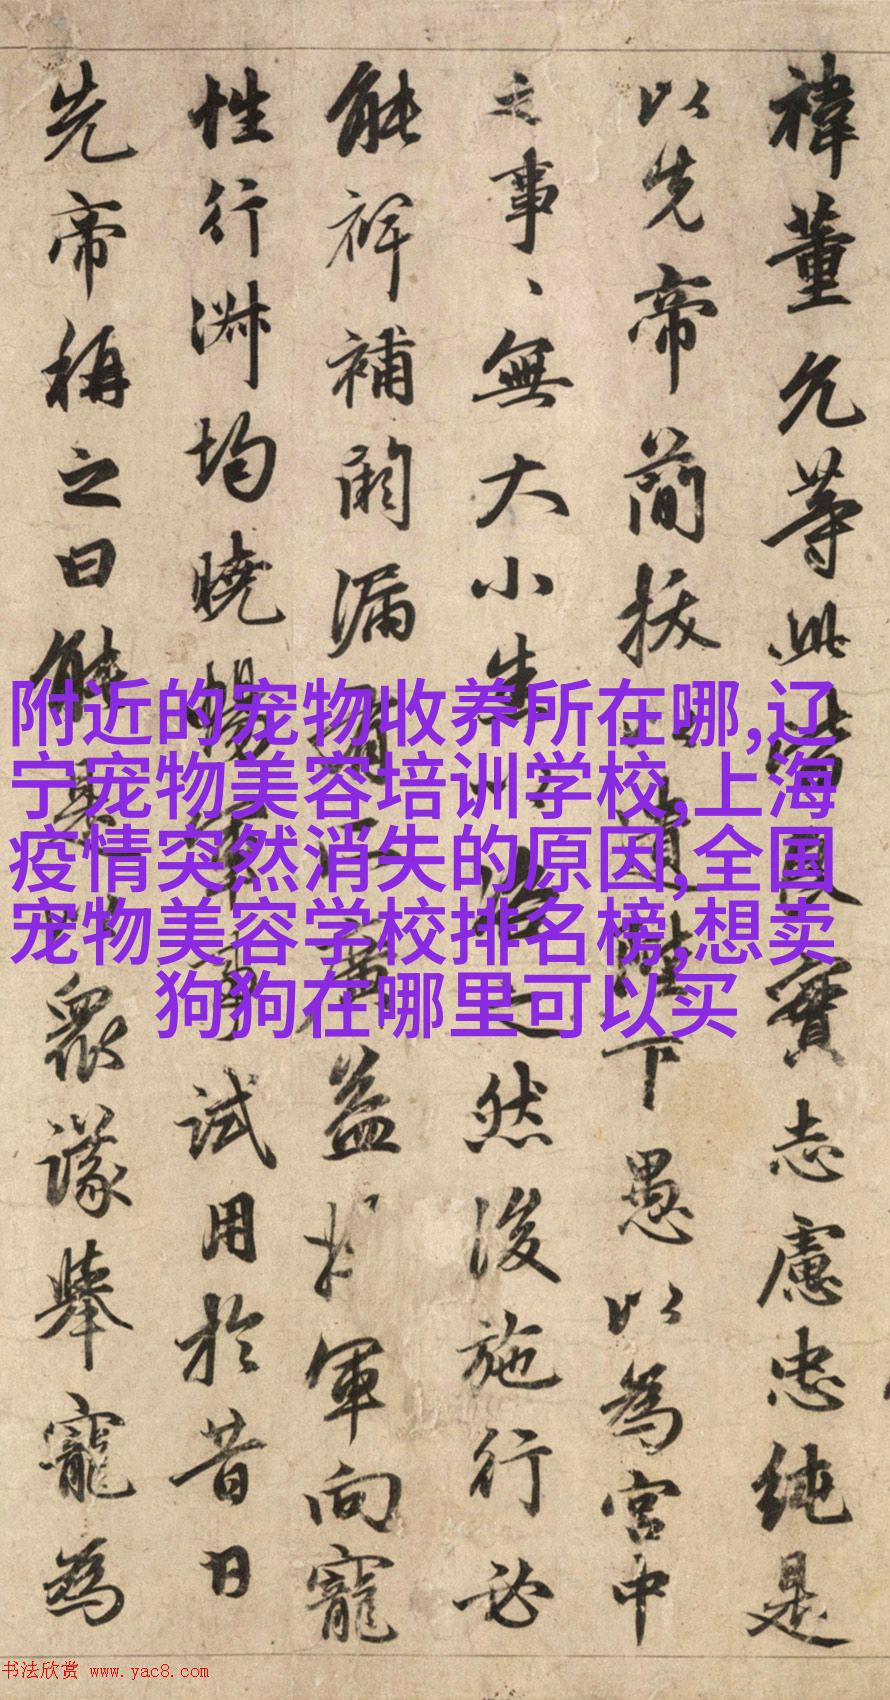 禕董允等此皆良實志慮忠純是
以先帝簡拔以遺陛下愚以為宮中
之事、無大小悉以咨之然後施行必
能裨補闕漏有所廣益將軍向寵
性行淑均曉暢軍事試用於昔日
先帝稱之曰能是以眾議舉寵為
附近的宠物收养所在哪,辽
宁宠物美容培训学校,上海
疫情突然消失的原因,全国
宠物美容学校排名榜,想卖
狗狗在哪里可以买
书法欣赏 www.yac8.com